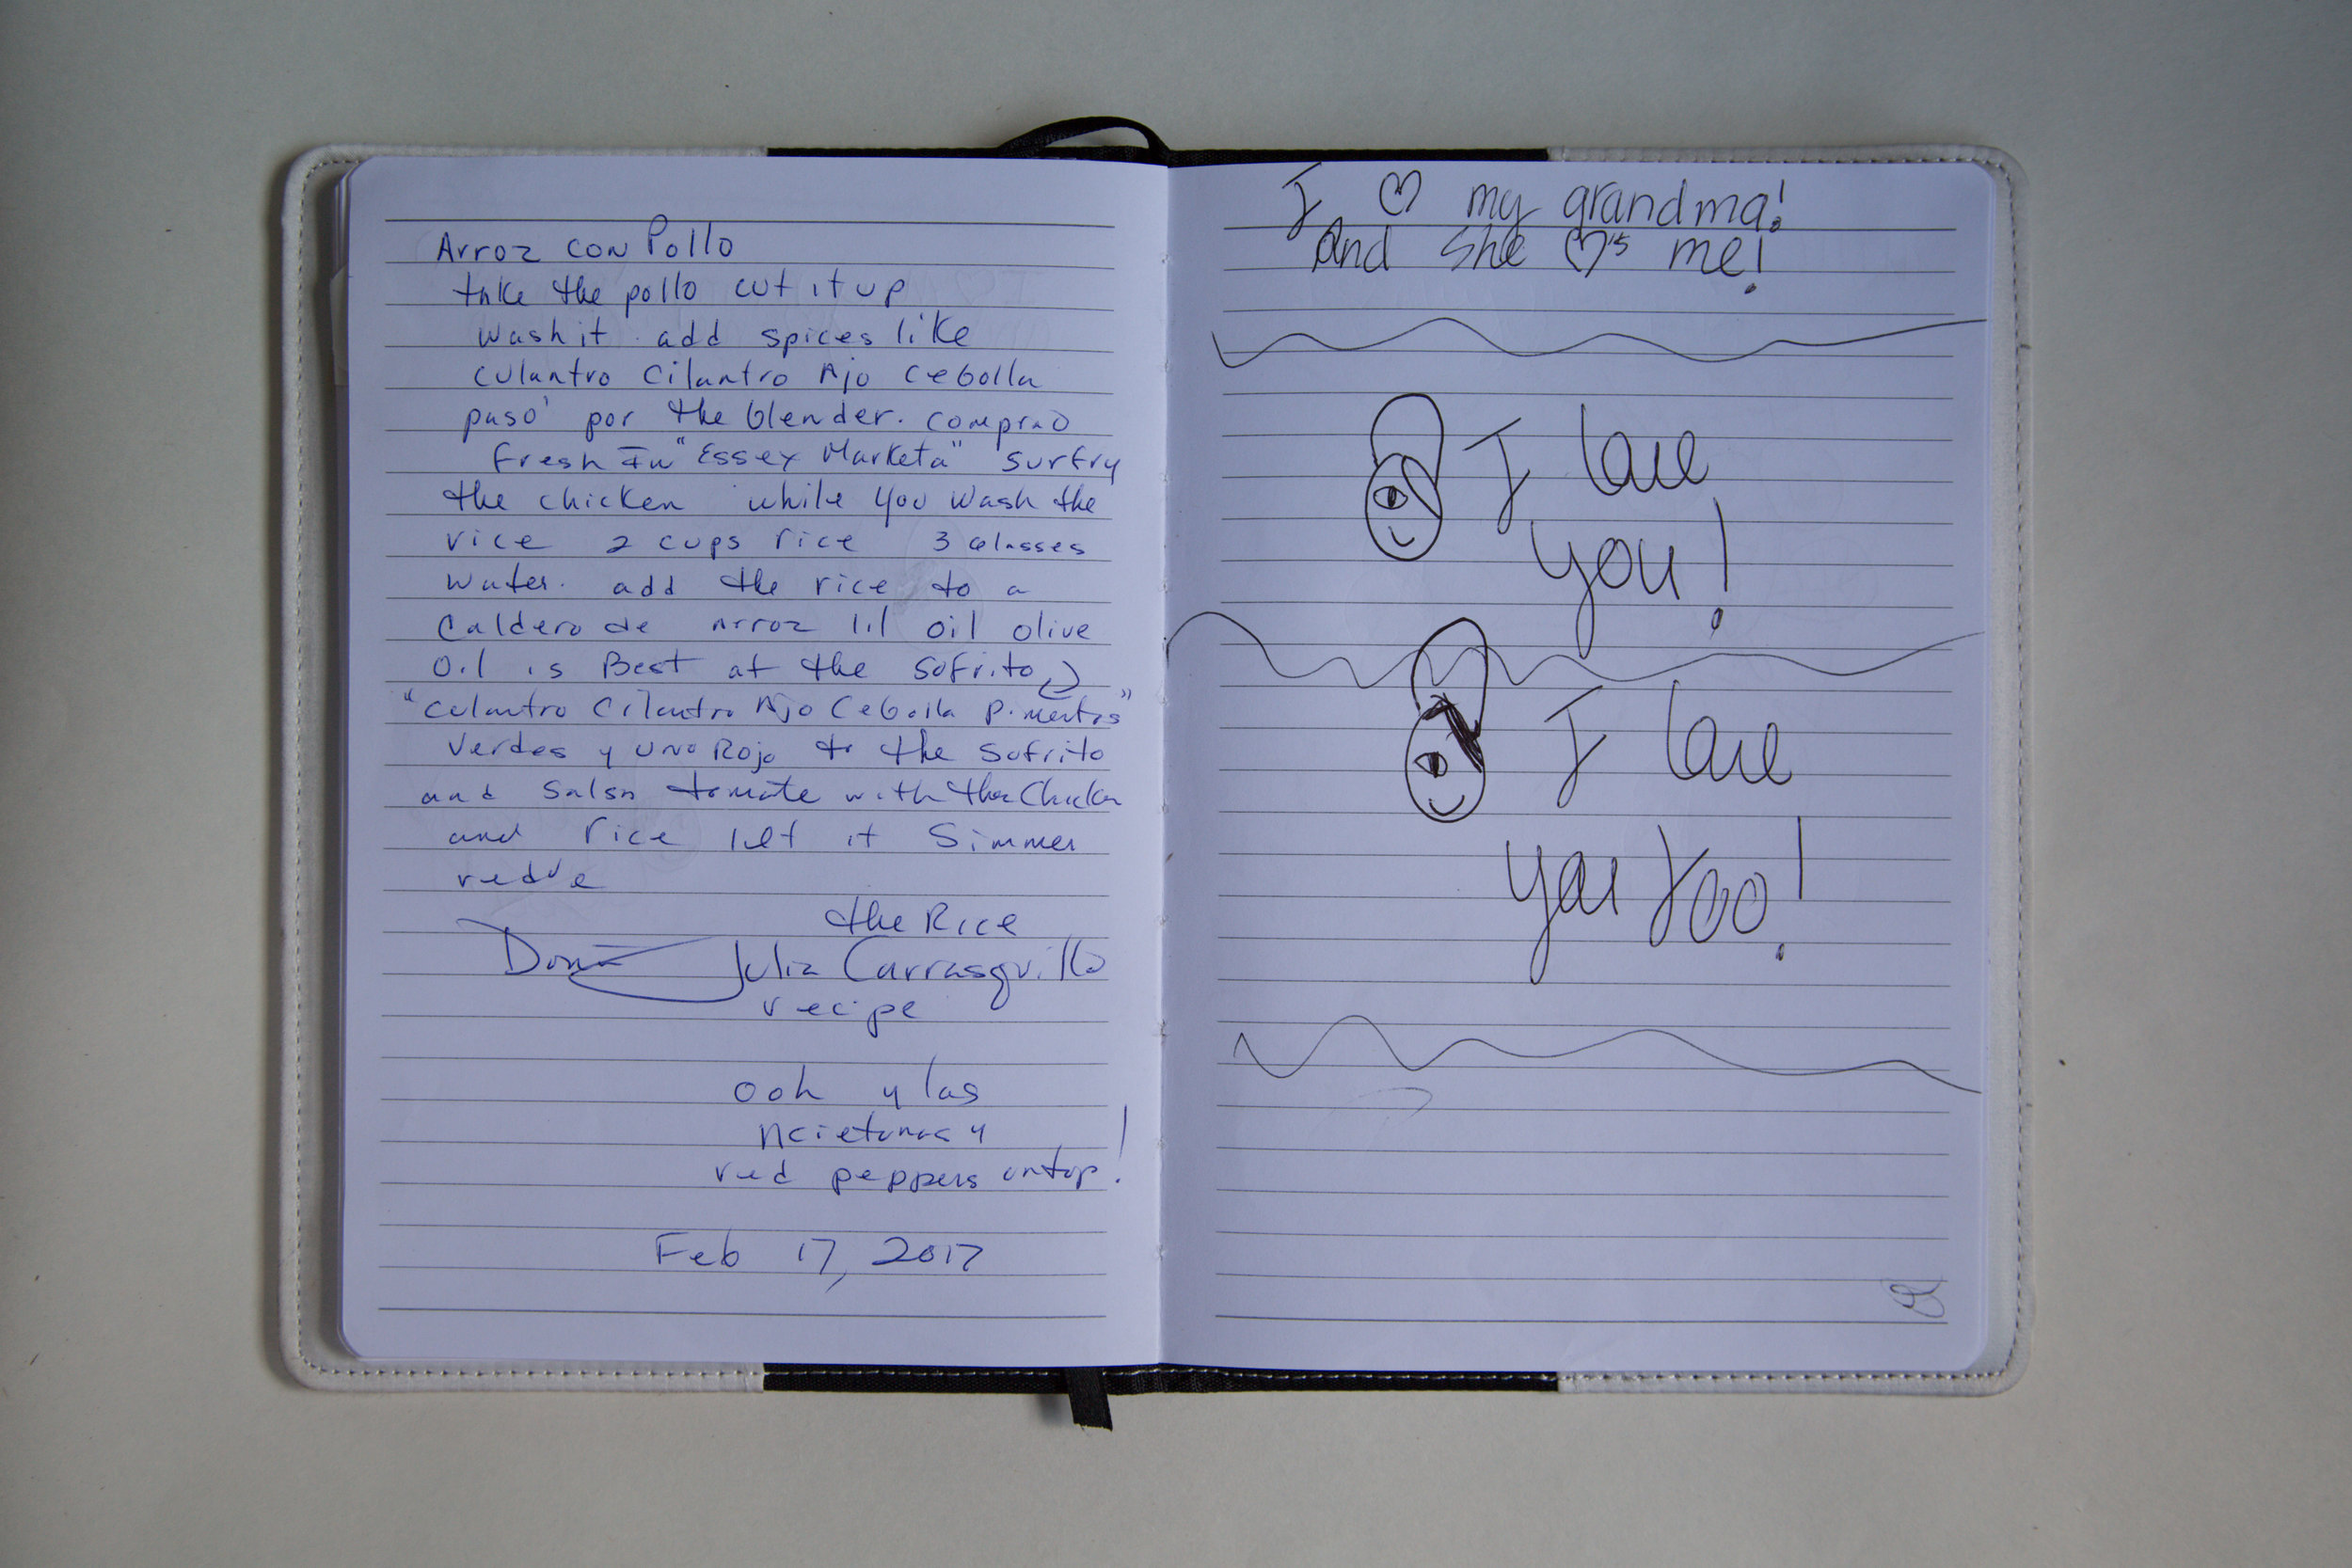 Arroz con Pollo
take the pollo cut it up
wash it. add spices like
culantro Cilantro Ajo Cebolla
paso' por the blender. comprao
Fresh In "Essex Marketa" surfry
the chicken while you wash the
rice 2 cups rice 3 glasses
water. add the rice to a
Caldero de arroz lil oil olive
Oil is Best at the Sofrito
"culantro Cilantro Ajo Cebolla Pimentos"
Verdes y uno Rojo to the Sofrito
and Salsa tomate with the Chicken
and rice let it Simmer
the Rice
Doña Julia Carrasquillo
recipe
ooh y las
Acietunas y
red peppers ontop!
Feb 17, 2017
I ♡ my grandma!
And she ♡'s me!
I love
you!
I love
you too!